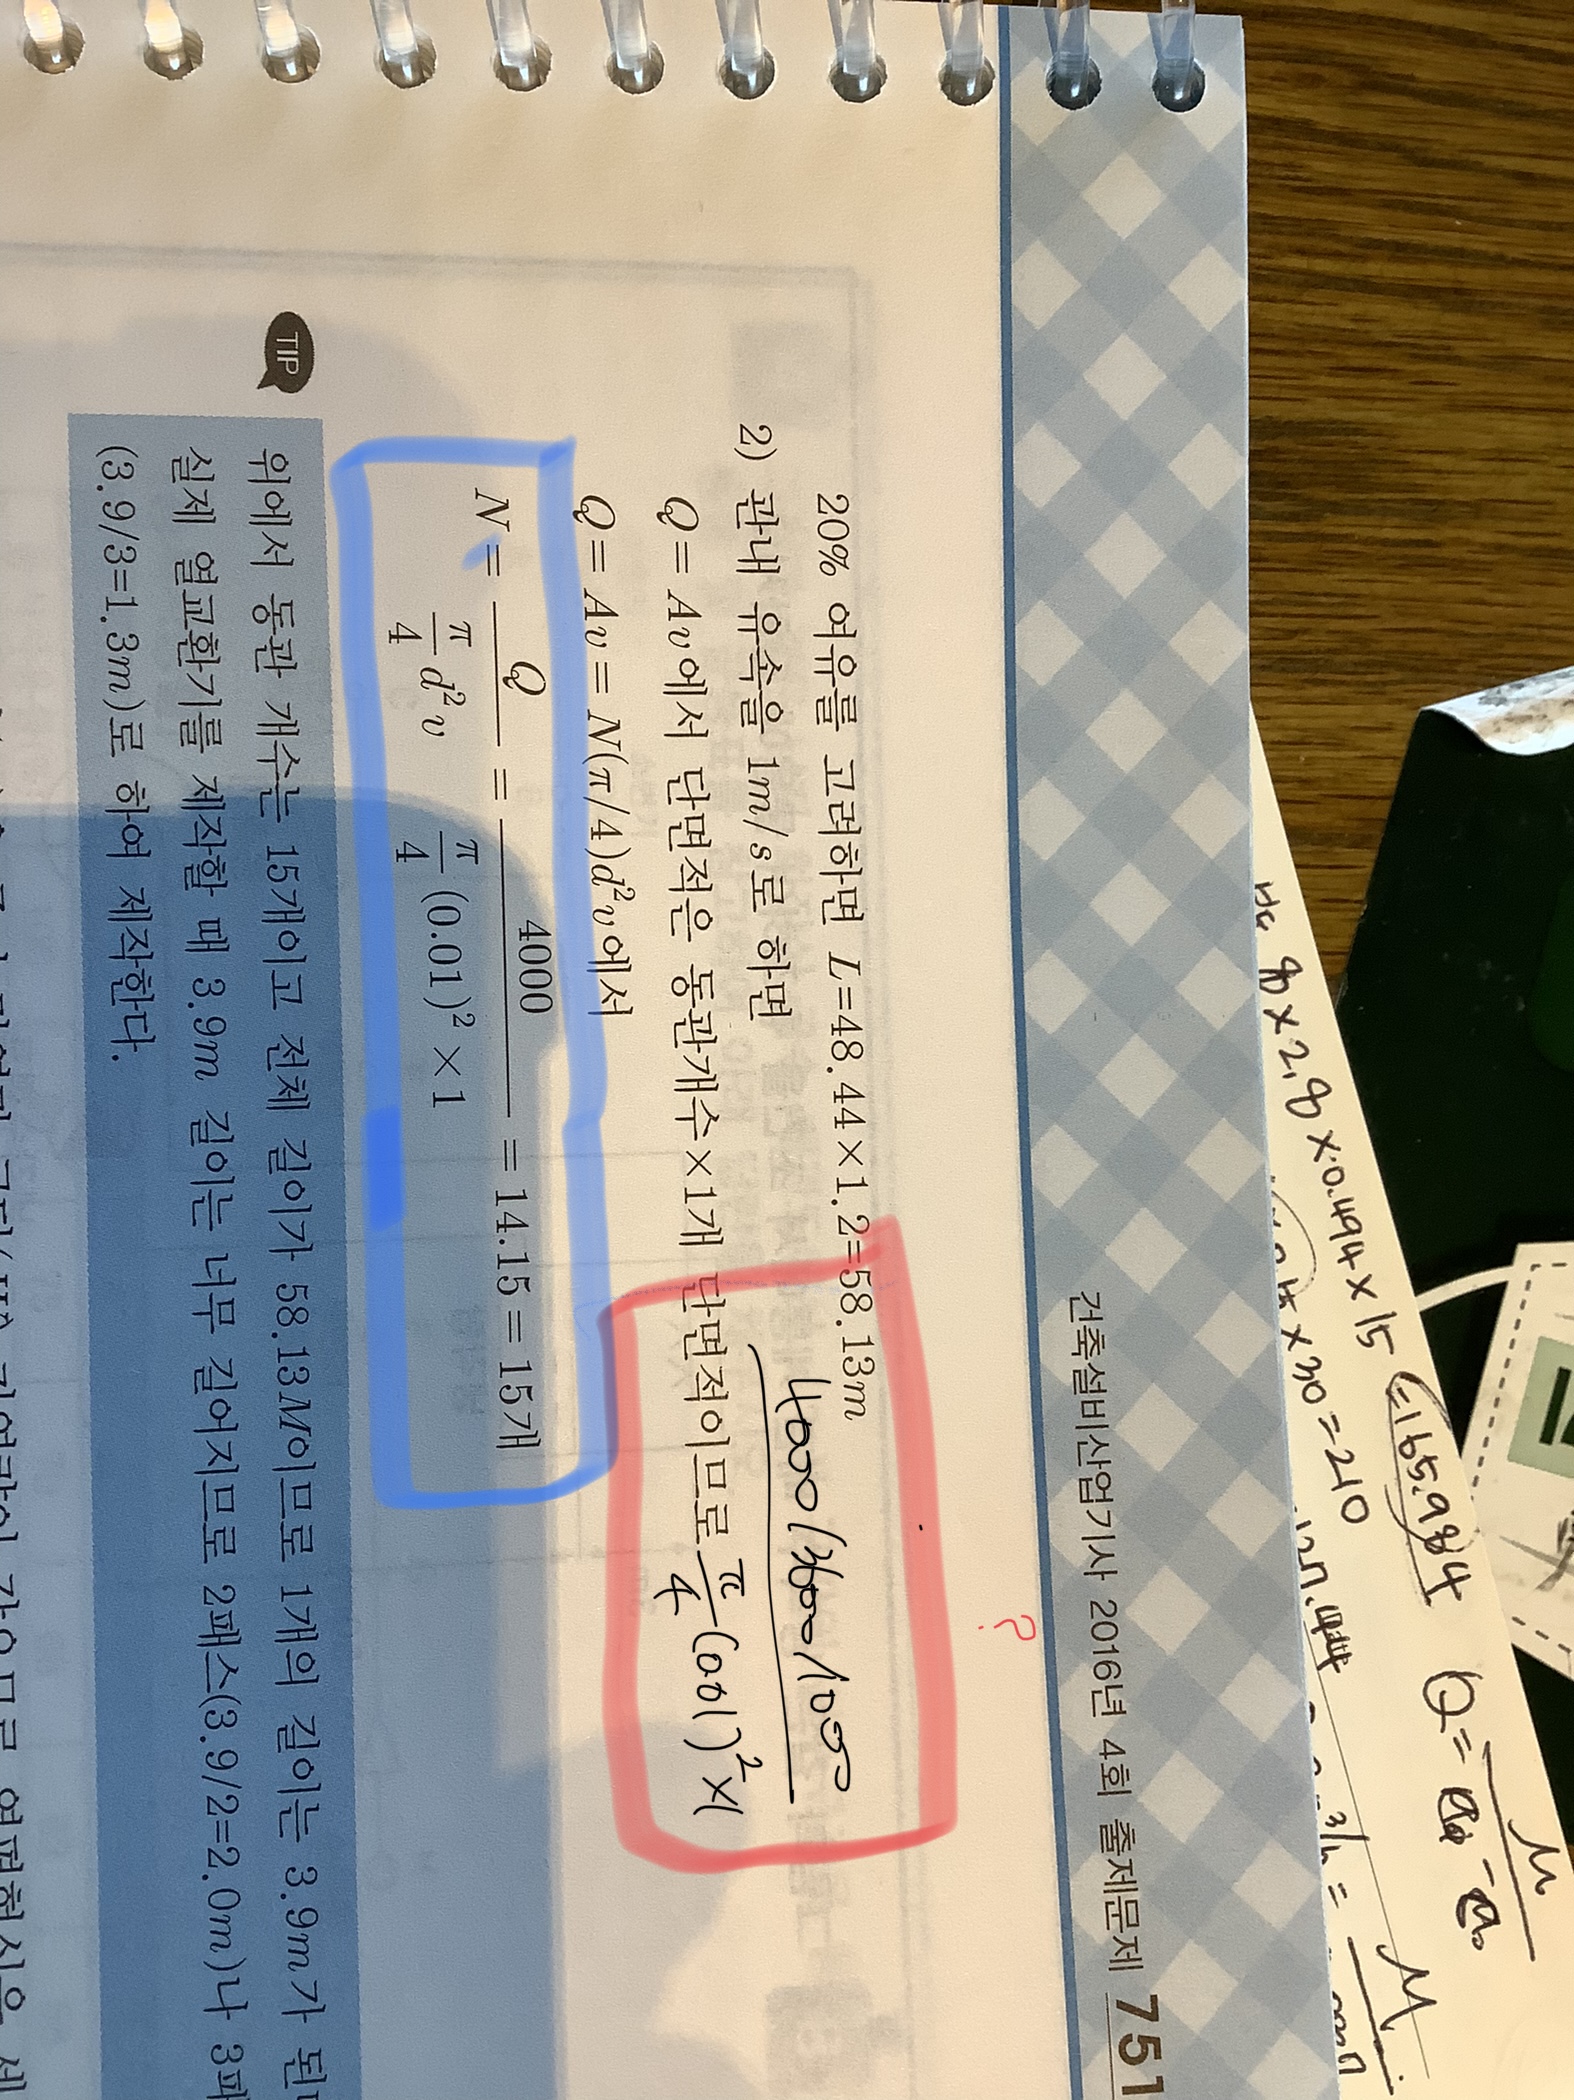 20% 여유를 고려하면 L=48.44×1.2=58.13m
2) 관내 유속을 1m/s로 하면
Q=Av에서 단면적은 동관개수×1개 단면적이므로
Q=Av=N(π/4)d²v에서
N= Q / (π/4 d²v) = 4000 / (π/4 (0.01)²×1) =14.15=15개
4000/3600/1000
π/4 (0.01)²×1
?
TIP
위에서 동관 개수는 15개이고 전체 길이가 58.13M이므로 1개의 길이는 3.9m가 된
실제 열교환기를 제작할 때 3.9m 길이는 너무 길어지므로 2패스(3.9/2=2.0m)나 3패
(3.9/3=1.3m)로 하여 제작한다.
건축설비산업기사 2016년 4회 출제문제 751
×2.8×0.494×15=165.984
×30=210
Q=